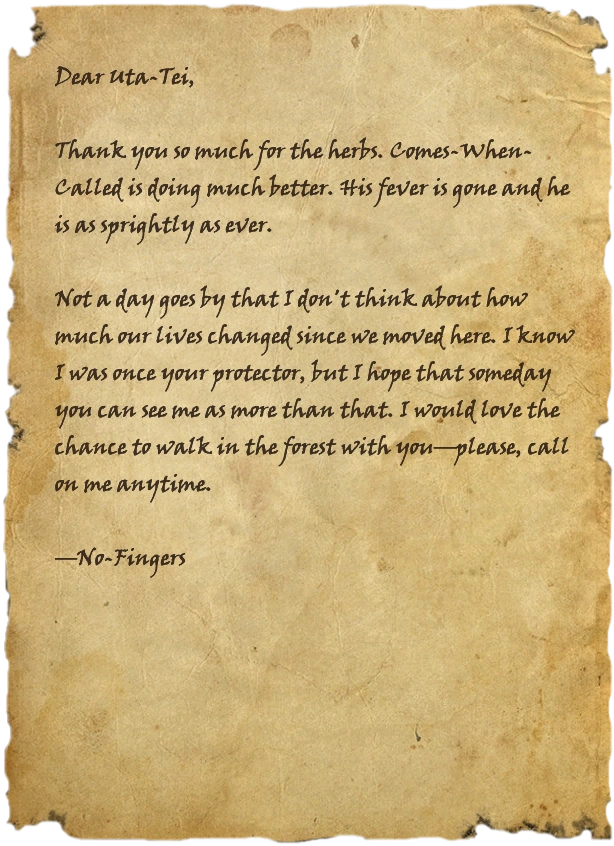 Dear Uta-Tei,
Thank you so much for the herbs. Comes-When-
Called is doing much better. His fever is gone and he
is as sprightly as ever.
Not a day goes by that I don't think about how
much our lives changed since we moved here. I know
I was once your protector, but I hope that someday
you can see me as more than that. I would love the
chance to walk in the forest with you—please, call
on me anytime.
—No-Fingers